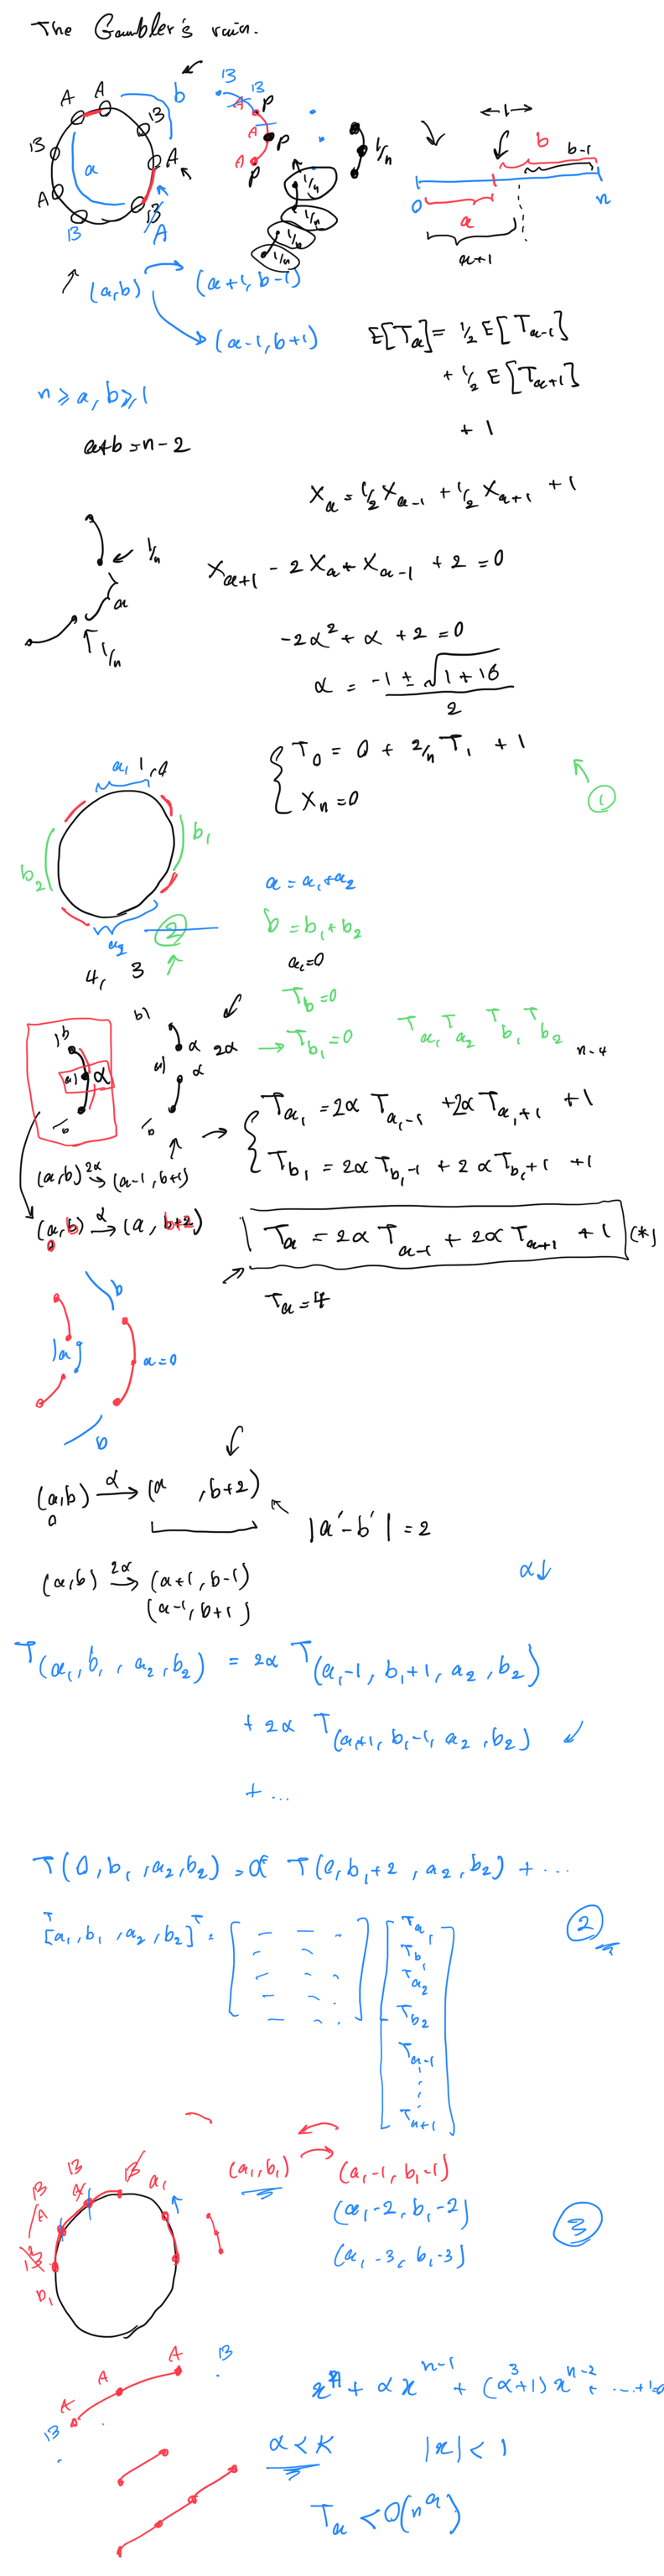 The Gambler's ruin.
A A b
B
B A
a
A B A
B
B B P
A
A P
A P
1/n
1/n
1/n
1/n
1/n
b b-1
0 n
a
a+1
(a,b) (a+1, b-1)
(a-1, b+1)
E[Ta] = 1/2 E[Ta-1]
+ 1/2 E[Ta+1]
+ 1
n ≥ a, b ≥ 1
a+b = n-2
Xa = 1/2 Xa-1 + 1/2 Xa+1 + 1
1/n
a
1/n
Xa+1 - 2Xa + Xa-1 + 2 = 0
-2α² + α + 2 = 0
α = -1 ± √1+16
2
T0 = 0 + 2/n T1 + 1
Xn = 0
1
a1
b1
b2
a2
2
a = a1+a2
b = b1+b2
a1=0
4, 3
Tb=0
Tb1=0
Ta1 Ta2 Tb1 Tb2
n-4
b) α 2α
a) α
Ta1 = 2α Ta1-1 + 2α Ta1+1 + 1
Tb1 = 2α Tb1-1 + 2α Tb1+1 + 1
(a,b) 2α→ (a-1, b+1)
(a,b) α→ (a, b+2)
0
Ta = 2α Ta-1 + 2α Ta+1 + 1 (*)
Ta=4
b
a a=0
b
(a,b) α→ (a , b+2)
0
|a'-b'| = 2
(a,b) 2α→ (a+1, b-1)
(a-1, b+1)
α↓
T(a1, b1, a2, b2) = 2α T(a1-1, b1+1, a2, b2)
+ 2α T(a1+1, b1-1, a2, b2)
+ ...
T(0, b1, a2, b2) = α T(0, b1+2, a2, b2) + ...
T[a1, b1, a2, b2]T =
Ta1
Tb1
Ta2
Tb2
Ta-1
Ta+1
2
B B a1
B A
A
b1
(a1,b1) (a1-1, b1-1)
(a1-2, b1-2)
(a1-3, b1-3)
3
A B
A
A
B
x^n + αx^n-1 + (α³+1)x^n-2 + ...
α < K |x| < 1
Ta < O(n^a)